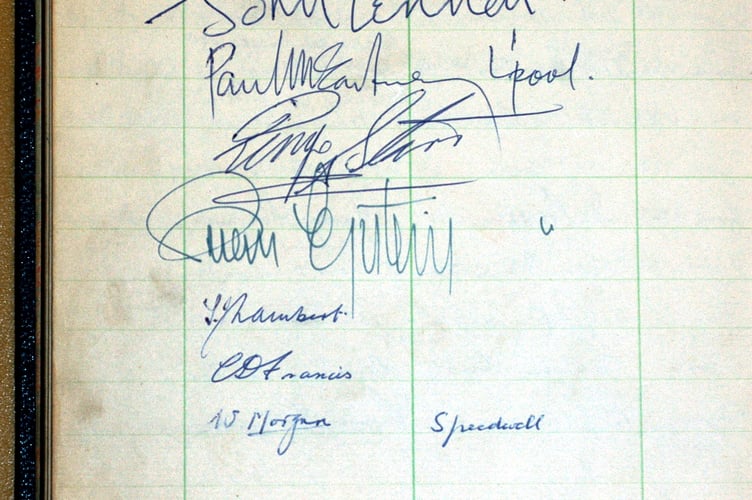 John Lennon
Paul McCartney L'pool.
Ringo Starr
Brian Epstein "
C D Francis
W Morgan Speedwell